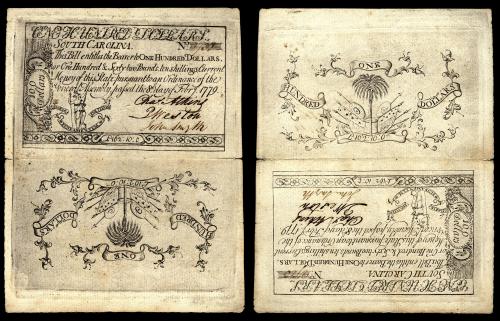 ONE HUNDRED DOLLARS.
SOUTH CAROLINA. No
This Bill entitles the Bearer to ONE HUNDRED DOLLARS,
or One Hundred & Sixty two Pounds, ten shillings, Current
Money of this State, pursuant to an Ordinance of the
General Assembly, passed the 8th day of Febry. 1779.
Plowden Weston
John Smyth
£162. 10. 0
£162. 10. 0
HUNDRED
DOLLARS
ONE
ONE
HUNDRED
DOLLARS
£162. 10. 0
£162. 10. 0
John Smyth
General Assembly, passed the 8th day of Febry. 1779
Money of this State, pursuant to an Ordinance of the
or One Hundred & Sixty two Pounds, ten shillings, Current
This Bill entitles the Bearer to ONE HUNDRED DOLLARS,
SOUTH CAROLINA. No
ONE HUNDRED DOLLARS